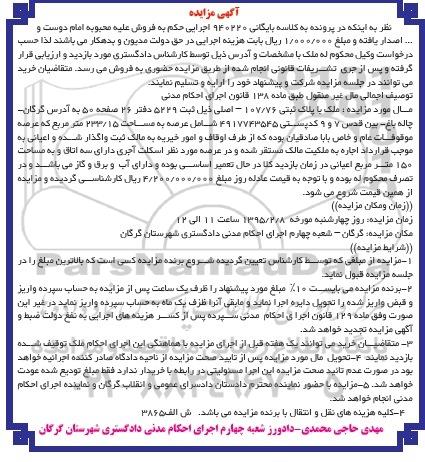 آگهی مزایده
نظر به اینکه در پرونده به کلاسه بایگانی ۹۴۰۲۲۰ اجرایی حکم به فروش علیه محبوبه امام دوست و
... اصدار یافته و مبلغ ۱/۰۰۰/۰۰۰ ریال بابت هزینه اجرایی در حق دولت مدیون و بدهکار می باشند لذا حسب
درخواست وکیل محکوم له ملک با مشخصات و آدرس ذیل توسط کارشناس دادگستری مورد بازدید و ارزیابی قرار
گرفته و پس از جری تشریفات قانونی انجام شده از طریق مزایده حضوری به فروش می رسد. متقاضیان خرید
می توانند در جلسه مزایده شرکت و پیشنهاد خود را ارایه و تسلیم نمایند.
توصیف اجمالی مال غیر منقول طبق ماده ۱۳۸ قانون اجرای احکام مدنی
مال مورد مزایده : ملک با پلاک ثبتی ۱۰۷/۷۶ – اصلی ذیل ثبت ۵۲۲۹ دفتر ۲۶ صفحه ۵۰ به آدرس گرگان–
چاله باغ– بین قدس ۷ و ۹ کدپستی ۴۹۱۷۷۴۳۵۴۵ شامل عرصه به مساحت ۲۳۳/۱۵ متر مربع که عرصه
موقوفات عام و خاص بابا صادقیان بوده که از طرف اوقاف و امور خیریه به مالک ثبت واگذار شده و اعیانی به
موجب قرارداد اجاره به ملکیت مالک مستقر شده و در عرصه مورد نظر اسکلت آجری دارای سه اتاق و به مساحت
۱۵۰ متر مربع اعیانی در زمان بازدید کلا در حال تعمیر اساسی بوده و دارای آب و برق و گاز می باشد و در
تصرف محکوم له بوده و با توجه به قیمت عادله روز مبلغ ۴/۲۰۰/۰۰۰/۰۰۰ ریال کارشناسی گردیده و مزایده
از همین قیمت شروع می شود.
((زمان ومکان مزایده))
زمان مزایده: روز چهارشنبه مورخه ۱۳۹۵/۲/۸ ساعت ۱۱ الی ۱۲
مکان مزایده: گرگان – شعبه چهارم اجرای احکام مدنی دادگستری شهرستان گرگان
((شرایط مزایده))
۱–مزایده از مبلغی که توسط کارشناس تعیین گردیده شروع برنده مزایده کسی است که بالاترین مبلغ را در
جلسه مزایده قبول نماید.
۲–برنده مزایده می بایست ۱۰٪ مبلغ مورد پیشنهاد را ظرف یک ساعت پس از مزایده به حساب سپرده واریز
و قبض واریز شده را تحویل دایره اجرا نماید و مابقی آنرا ظرف یک ماه به حساب سپرده واریز نماید در غیر این
صورت وفق ماده ۱۲۹ قانون اجرای احکام مدنی سپرده پس از کسر هزینه های اجرایی به نفع دولت ضبط و
آگهی مزایده تجدید خواهد شد.
۳– متقاضیان خرید می توانند یک هفته قبل از اجرای مزایده با هماهنگی این اجرای احکام ملک توقیف شده
بازدید نمایند ۴–تحویل مال مورد مزایده پس از تایید صحت مزایده از ناحیه دادگاه صادر کننده اجرائیه خواهد
بود در صورت عدم تائید صحت مزایده این اجرا مسئولیتی در رابطه با خریدار ندارد فقط مبلغ تودیع شده عودت
خواهد شد. ۵–مزایده با حضور نماینده محترم دادستان دادسرای عمومی و انقلاب گرگان و نماینده اجرای احکام
مدنی انجام خواهد شد.
۴–کلیه هزینه های نقل و انتقال با برنده مزایده می باشد. ش الف۳۸۶۵
مهدی حاجی محمدی–دادورز شعبه چهارم اجرای احکام مدنی دادگستری شهرستان گرگان